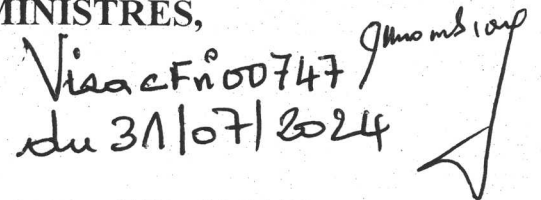 MINISTRES,
Visa CF n° 00747
du 31/07/2024